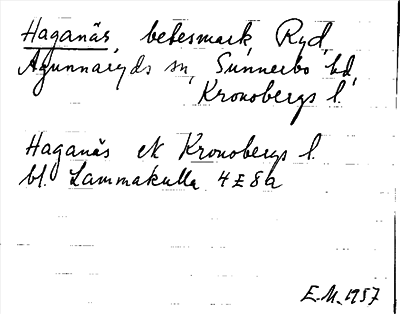 Haganäs, betesmark, Ryd,
Agunnaryds sn, Sunnerbo hd,
Kronobergs l.
Haganäs ek Kronobergs l.
bl. Lammakulla 4E8a
E.M. 1957